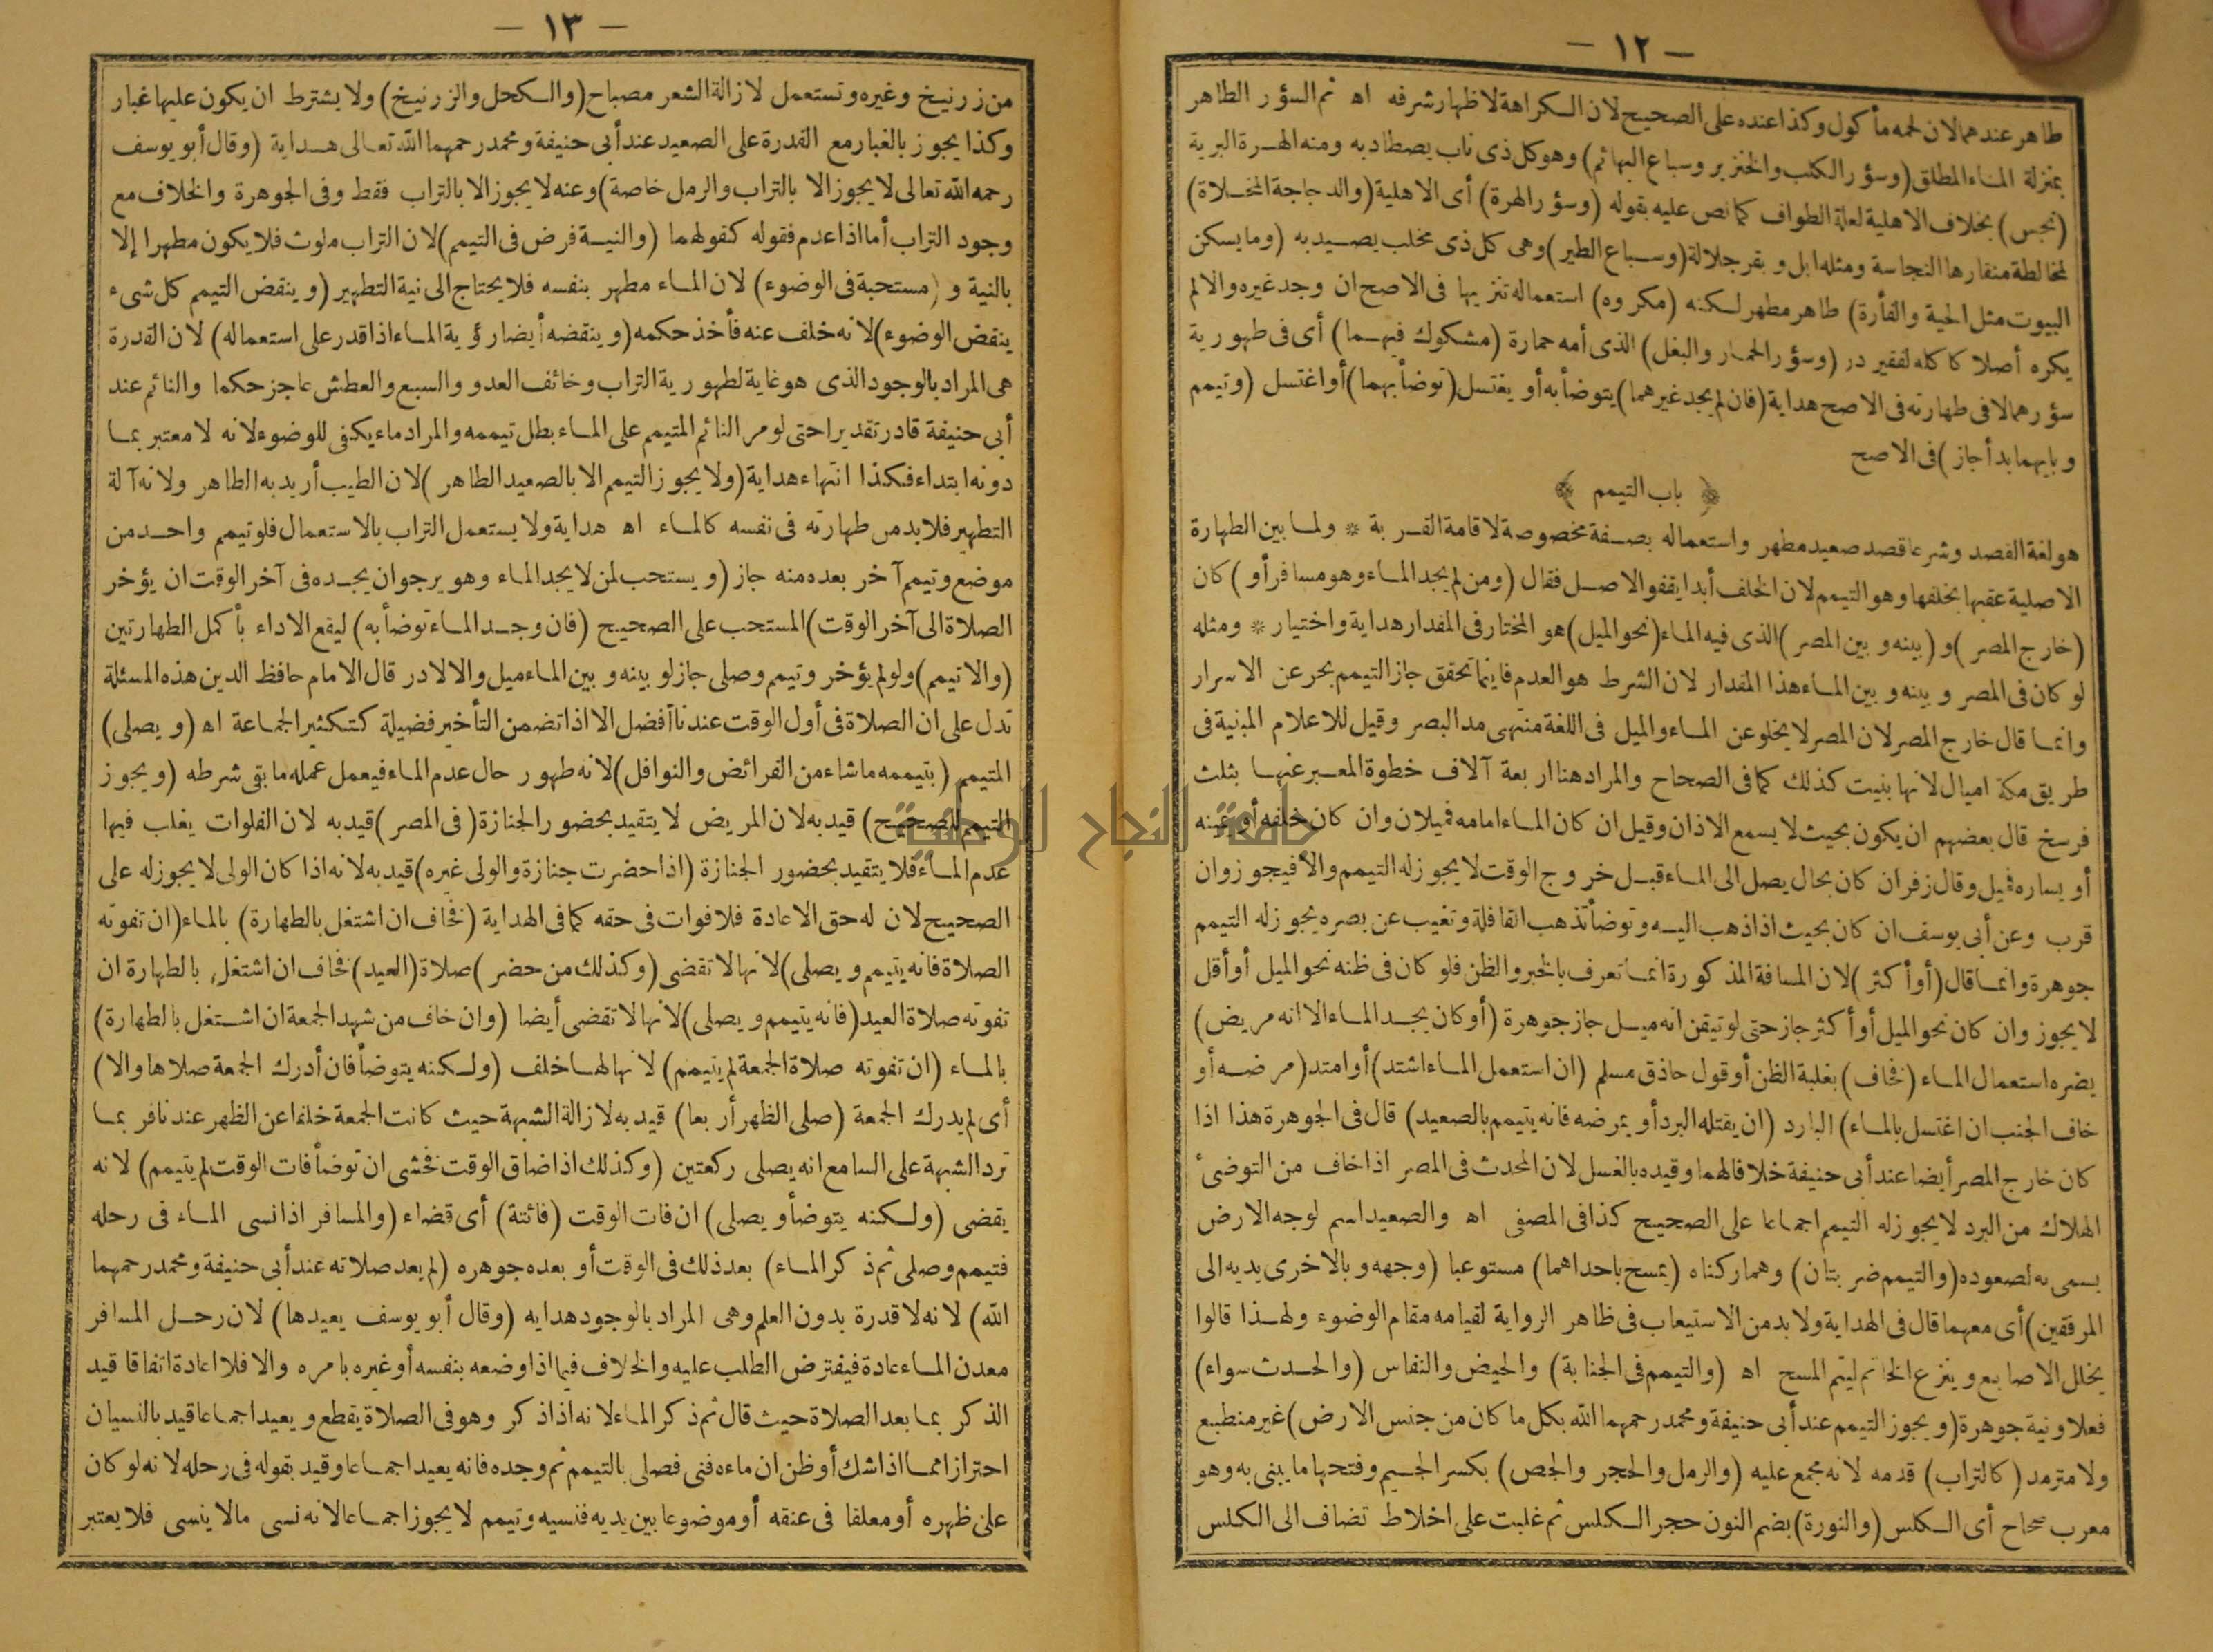 — ١٢ —
طاهر عندهما لان لحمه مأكول وكذا عنده على الصحيح لان الكراهة لاظهار شرفه اه ثم السؤر الطاهر
بمنزلة الماء المطلق (وسؤر الكلب والخنزير وسباع البهائم) وهو كل ذى ناب يصطاد به ومنه الهرة البرية
(نجس) بخلاف الاهلية لعلة الطواف كما نص عليه بقوله (وسؤر الهرة) أى الاهلية (والدجاجة المخلاة)
لمخالطة منقارها النجاسة ومثله ابل وبقر جلالة (وسباع الطير) وهى كل ذى مخلب يصيد به (وما يسكن
البيوت مثل الحية والفأرة) طاهر مطهر لكنه (مكروه) استعماله تنزيها فى الاصح ان وجد غيره والا لم
يكره أصلا كاكله لفقير در (وسؤر الحمار والبغل) الذى أمه حمارة (مشكوك فيهما) أى فى طهورية
سؤرهما لا فى طهارته فى الاصح هداية (فان لم يجد غيرهما) يتوضأ به أو يغتسل (توضأ بهما) أو اغتسل (وتيمم
وبايهما بدأ جاز) فى الاصح
﴿ باب التيمم ﴾
هو لغة القصد وشرعا قصد صعيد مطهر واستعماله بصفة مخصوصة لاقامة القربة * ولما بين الطهارة
الاصلية عقبها بخلفها وهو التيمم لان الخلف أبدا يقفو الاصل فقال (ومن لم يجد الماء وهو مسافر أو) كان
(خارج المصر) و (بينه وبين المصر) الذى فيه الماء (نحو الميل) هو المختار فى المقدار هداية واختيار * ومثله
لو كان فى المصر وبينه وبين الماء هذا المقدار لان الشرط هو العدم فاينما تحقق جاز التيمم بحر عن الاسرار
وانما قال خارج المصر لان المصر لا يخلو عن الماء والميل فى اللغة منتهى مد البصر وقيل للاعلام المبنية فى
طريق مكة اميال لانها بنيت كذلك كما فى الصحاح والمراد هنا اربعة آلاف خطوة المعبر عنها بثلث
فرسخ قال بعضهم ان يكون بحيث لا يسمع الاذان وقيل ان كان الماء امامه فميلان وان كان خلفه أو يمينه
أو يساره فميل وقال زفر ان كان بحال يصل الى الماء قبل خروج الوقت لا يجوز له التيمم والا فيجوز وان
قرب وعن أبى يوسف ان كان بحيث اذا ذهب اليه وتوضأ تذهب القافلة وتغيب عن بصره يجوز له التيمم
جوهرة وانما قال (أو أكثر) لان المسافة المذكورة انما تعرف بالخبر والظن فلو كان فى ظنه نحو الميل أو أقل
لا يجوز وان كان نحو الميل أو أكثر جاز حتى لو تيقن انه ميل جاز جوهرة (أو كان يجد الماء الا انه مريض)
يضره استعمال الماء (فخاف) بغلبة الظن أو قول حاذق مسلم (ان استعمل الماء اشتد) أو امتد (مرضه أو
خاف الجنب ان اغتسل بالماء) البارد (ان يقتله البرد أو يمرضه فانه يتيمم بالصعيد) قال فى الجوهرة هذا اذا
كان خارج المصر أيضا عند أبى حنيفة خلافا لهما وقيده بالغسل لان المحدث فى المصر اذا خاف من التوضئ
الهلاك من البرد لا يجوز له التيمم اجماعا على الصحيح كذا فى المصفى اه والصعيد اسم لوجه الارض
يسمى به لصعوده (والتيمم ضربتان) وهما ركناه (يمسح باحداهما) مستوعبا (وجهه وبالاخرى يديه الى
المرفقين) أى معهما قال فى الهداية ولا بد من الاستيعاب فى ظاهر الرواية لقيامه مقام الوضوء ولهذا قالوا
يخلل الاصابع وينزع الخاتم ليتم المسح اه (والتيمم فى الجنابة) والحيض والنفاس (والحدث سواء)
فعلا ونية جوهرة (ويجوز التيمم عند أبى حنيفة ومحمد رحمهما الله بكل ما كان من جنس الارض) غير منطبع
ولا مترمد (كالتراب) قدمه لانه مجمع عليه (والرمل والحجر والجص) بكسر الجيم وفتحها ما يبنى به وهو
معرب صحاح أى الكلس (والنورة) بضم النون حجر الكلس ثم غلبت على اخلاط تضاف الى الكلس
— ١٣ —
من زرنيخ وغيره وتستعمل لازالة الشعر مصباح (والكحل والزرنيخ) ولا يشترط ان يكون عليها غبار
وكذا يجوز بالغبار مع القدرة على الصعيد عند أبى حنيفة ومحمد رحمهما الله تعالى هداية (وقال أبو يوسف
رحمه الله تعالى لا يجوز الا بالتراب والرمل خاصة) وعنه لا يجوز الا بالتراب فقط وفى الجوهرة والخلاف مع
وجود التراب أما اذا عدم فقوله كقولهما (والنية فرض فى التيمم) لان التراب ملوث فلا يكون مطهرا إلا
بالنية و (مستحبة فى الوضوء) لان الماء مطهر بنفسه فلا يحتاج الى نية التطهير (وينقض التيمم كل شىء
ينقض الوضوء) لانه خلف عنه فأخذ حكمه (وينقضه أيضا رؤية الماء اذا قدر على استعماله) لان القدرة
هى المراد بالوجود الذى هو غاية لطهورية التراب وخائف العدو والسبع والعطش عاجز حكما والنائم عند
أبى حنيفة قادر تقديرا حتى لو مر النائم المتيمم على الماء بطل تيممه والمراد ماء يكفى للوضوء لانه لا معتبر بما
دونه ابتداء فكذا انتهاء هداية (ولا يجوز التيمم الا بالصعيد الطاهر) لان الطيب أريد به الطاهر ولانه آلة
التطهير فلا بد من طهارته فى نفسه كالماء اه هداية ولا يستعمل التراب بالاستعمال فلو تيمم واحد من
موضع وتيمم آخر بعده منه جاز (ويستحب لمن لا يجد الماء وهو يرجو ان يجده فى آخر الوقت ان يؤخر
الصلاة الى آخر الوقت) المستحب على الصحيح (فان وجد الماء توضأ به) ليقع الاداء بأكمل الطهارتين
(والا تيمم) ولو لم يؤخر وتيمم وصلى جاز لو بينه وبين الماء ميل والا لا در قال الامام حافظ الدين هذه المسئلة
تدل على ان الصلاة فى أول الوقت عندنا أفضل الا اذا تضمن التأخير فضيلة كتكثير الجماعة اه (ويصلى)
المتيمم (بتيممه ما شاء من الفرائض والنوافل) لانه طهور حال عدم الماء فيعمل عمله ما بقى شرطه (ويجوز
التيمم للصحيح) قيد به لان المريض لا يتقيد بحضور الجنازة (فى المصر) قيد به لان الفلوات يغلب فيها
عدم الماء فلا يتقيد بحضور الجنازة (اذا حضرت جنازة والولى غيره) قيد به لانه اذا كان الولى لا يجوز له على
الصحيح لان له حق الاعادة فلا فوات فى حقه كما فى الهداية (فخاف ان اشتغل بالطهارة) بالماء (ان تفوته
الصلاة فانه يتيمم ويصلى) لانها لا تقضى (وكذلك من حضر) صلاة (العيد) فخاف ان اشتغل بالطهارة ان
تفوته صلاة العيد (فانه يتيمم ويصلى) لانها لا تقضى أيضا (وان خاف من شهد الجمعة ان اشتغل بالطهارة)
بالماء (ان تفوته صلاة الجمعة لم يتيمم) لانها لها خلف (ولكنه يتوضأ فان أدرك الجمعة صلاها والا)
أى لم يدرك الجمعة (صلى الظهر أربعا) قيد به لازالة الشبهة حيث كانت الجمعة خلفا عن الظهر عندنا فربما
ترد الشبهة على السامع انه يصلى ركعتين (وكذلك اذا ضاق الوقت فخشى ان توضأ فات الوقت لم يتيمم) لانه
يقضى (ولكنه يتوضأ ويصلى) ان فات الوقت (فائتة) أى قضاء (والمسافر اذا نسى الماء فى رحله
فتيمم وصلى ثم ذكر الماء) بعد ذلك فى الوقت أو بعده جوهره (لم يعد صلاته عند أبى حنيفة ومحمد رحمهما
الله) لانه لا قدرة بدون العلم وهى المراد بالوجود هدايه (وقال أبو يوسف يعيدها) لان رحل المسافر
معدن الماء عادة فيفترض الطلب عليه والخلاف فيما اذا وضعه بنفسه أو غيره بامره والا فلا اعادة اتفاقا قيد
الذكر بما بعد الصلاة حيث قال ثم ذكر الماء لانه اذا ذكر وهو فى الصلاة يقطع ويعيد اجماعا قيد بالنسيان
احترازا مما اذا شك أو ظن ان ماءه فنى فصلى بالتيمم ثم وجده فانه يعيد اجماعا وقيد بقوله فى رحله لانه لو كان
على ظهره أو معلقا فى عنقه أو موضوعا بين يديه فنسيه وتيمم لا يجوز اجماعا لانه نسى مالا ينسى فلا يعتبر
جامعة النجاح الوطنية